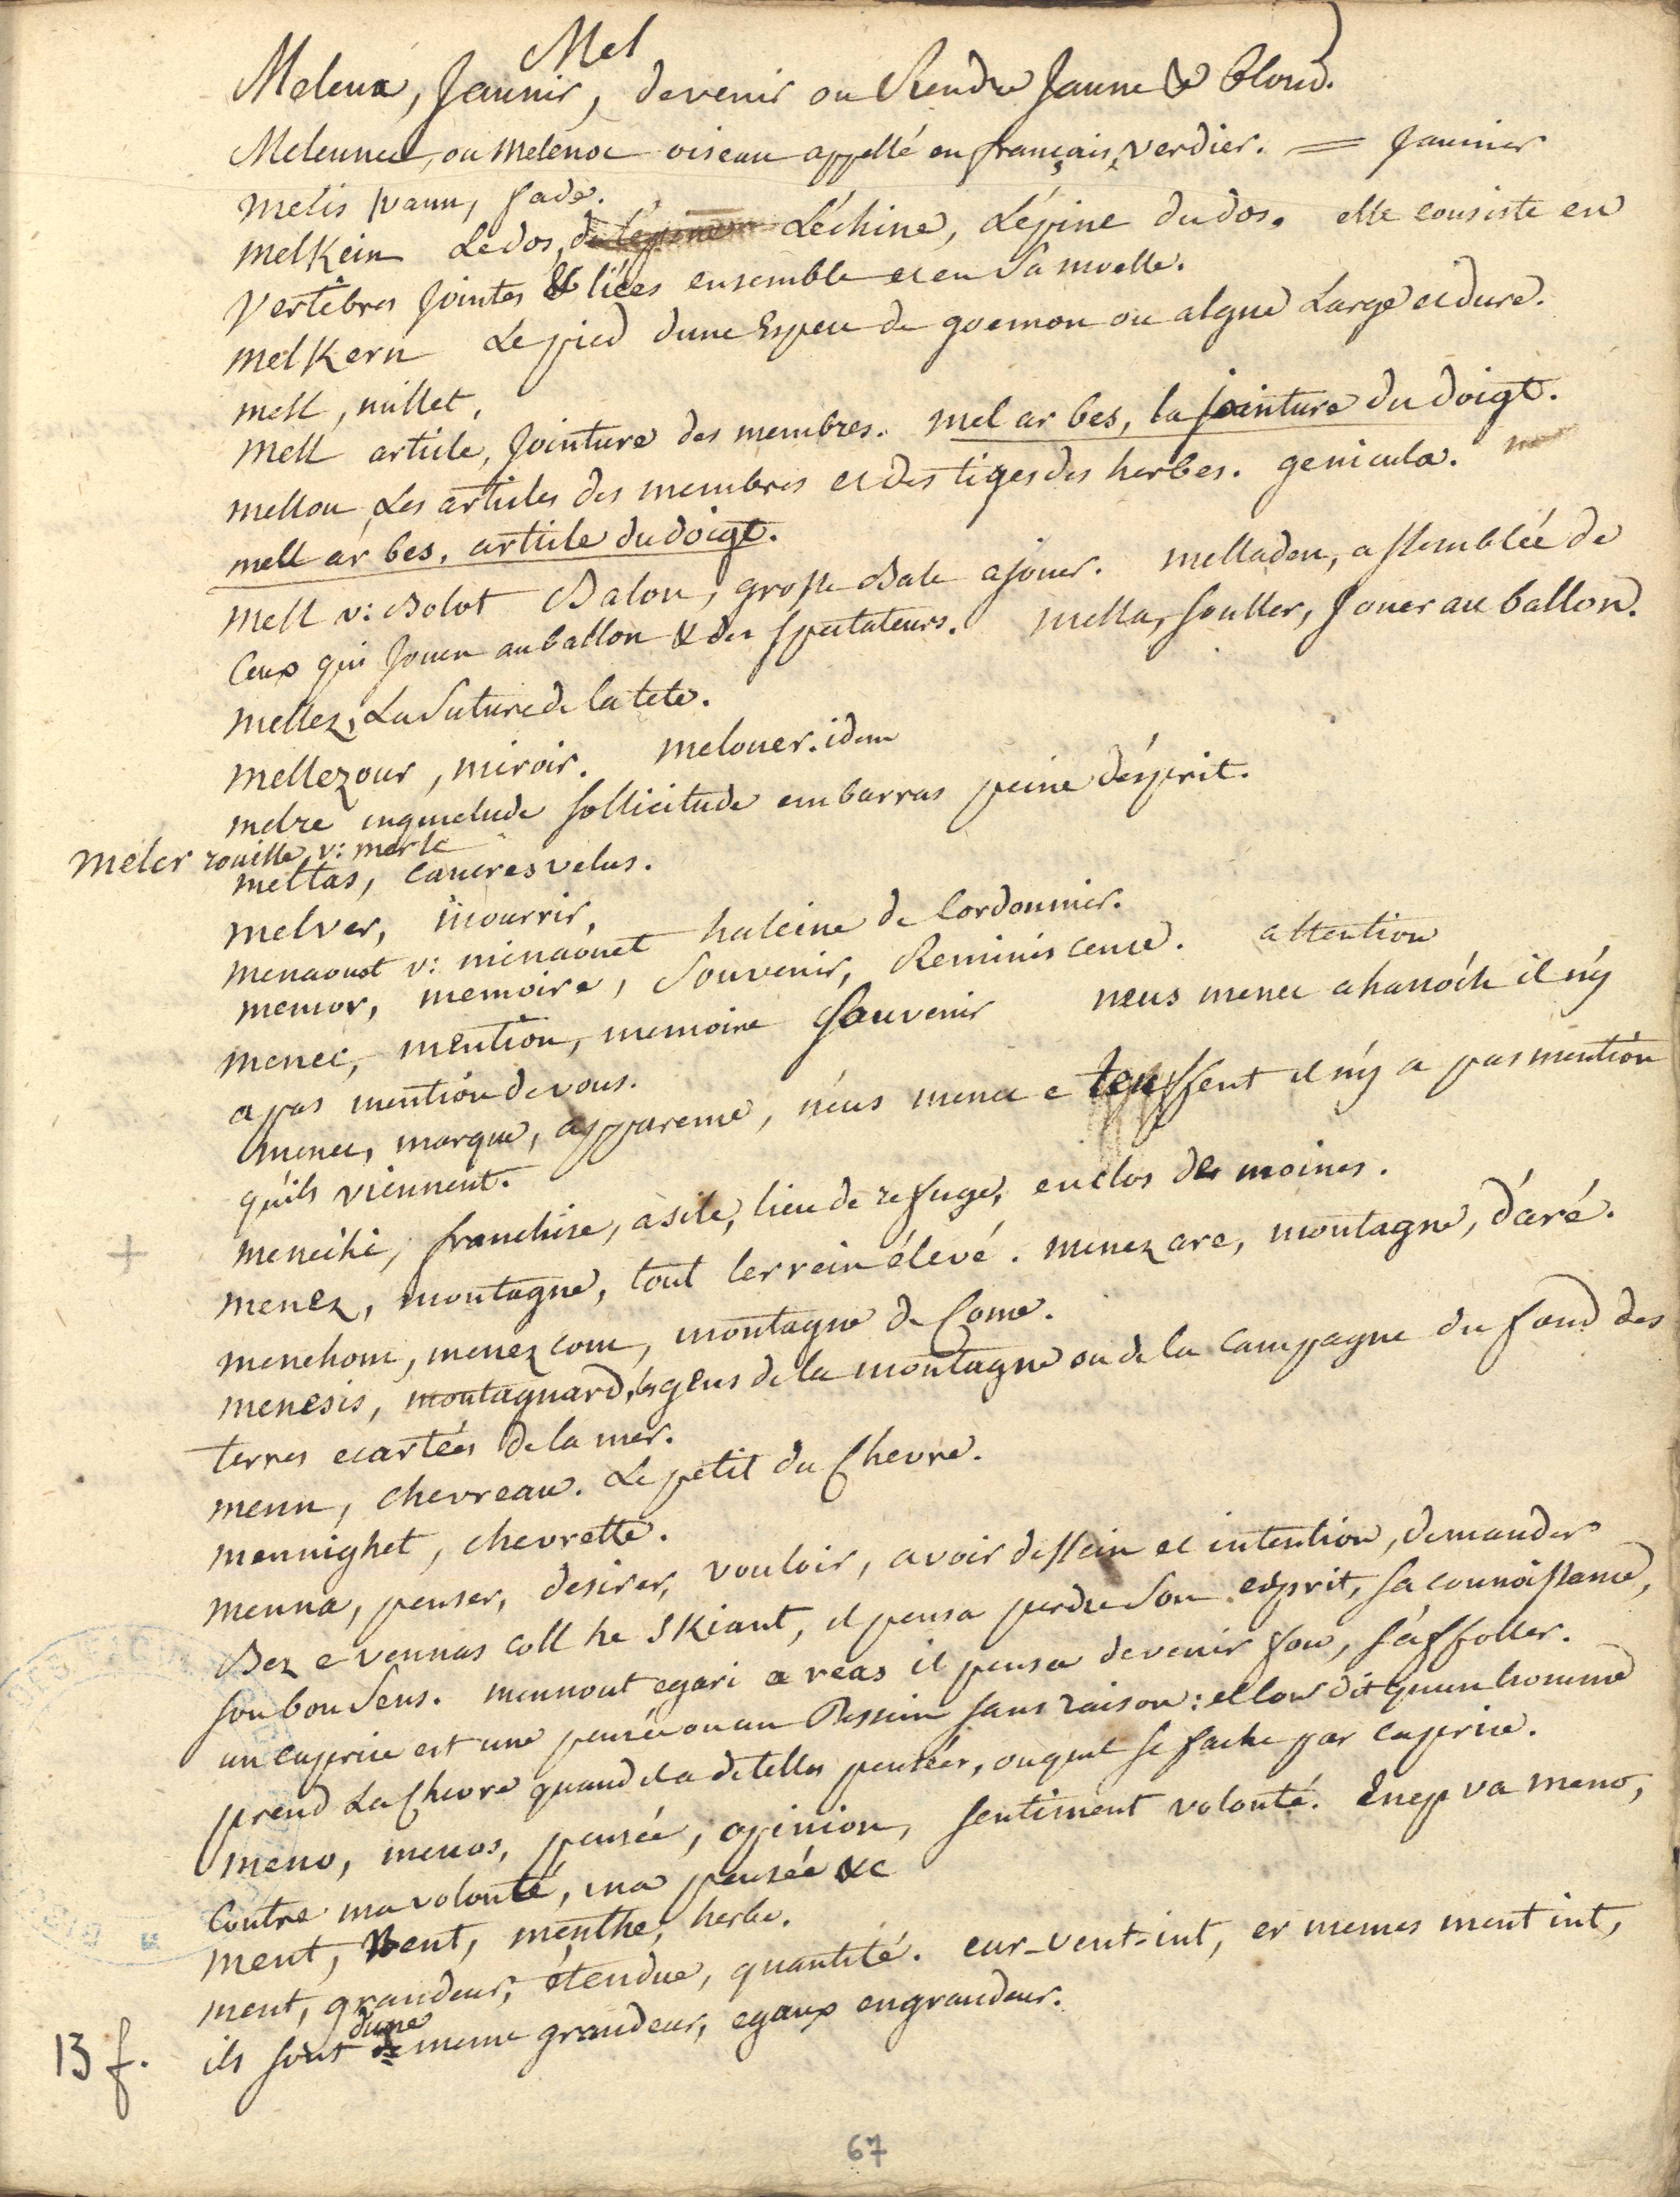 Mel
Melena, Jaunir, devenir ou Rendre Jaune & blond.
Melennec, ou melenoc oiseau appellé en français, verdier. = Jaunier
melis vann, fade.
melKein Le dos, L'échine, L'épine du dos. elle consiste en
vertèbres jointes & liées ensemble et en sa moelle.
melKern Le pied dune Espece de goemon ou algue Large et dure.
mell, millet,
Mell article, Jointure des membres. mel ar bes, la jointure du doigt.
mellou Les articles des membres et des tiges des herbes. genicula.
mell ar bes, article du doigt.
mell v: Bolot Balon, grosse Bale a jouer. melladen, assemblée de
Ceux qui Jouen au ballon & des spectateurs. mella, souller, Jouer au ballon.
mellez, La Suture de la tete.
mellezour, miroir. melouer. idem
melre inquietude sollicitude embarras peine d'ésprit.
meler rouille v: merle
meltas, cancres velus.
melver, mourrir,
menaouet v: minaouet haleine de Cordonnier.
memor, memoire, Souvenir, Reminiscence. attention
menec, mention, memoire Souvenir neus menec ahanoc'h il n'y
a pas mention de vous.
menec, marque, apparence, néus menec e teuffent il n'y a pas mention
qu'ils viennent.
menec'hi, franchise, asile, lieu de refuge, enclos des moines.
menez, montagne, tout terrein élevé. menez are, montagne, d'aré.
menehom, menez com, montagne de Come.
menesis, montagnard, les gens de la montagne ou de la campagne du fond des
terres ecartées de la mer.
menn, chevreau. Le petit du Chevre.
mennighet, chevrette.
menna, penser, desirer, vouloir, avoir dessein et intention, demander
Bez e vennas coll he sKiant, il pensa perdre Son esprit, sa connoissance,
son bon Sens. mennout egari a reas il pensa devenir fou, s'affoller.
un caprice est une pensée ou un Dessein sans raison: et lon dit quun homme
prend La Chevre quand il a de telles pensées, ou quil se fache par caprice.
meno, menos, pensée, opinion, sentiment volonté. Enep va meno,
Contre ma volonté, ma pensée &c
ment, Bent, menthe, herbe.
ment, grandeur, étendue, quantité. eur-vent-int, er memes ment int,
ils sont dune meme grandeur, egaux en grandeur.
13 f.
67